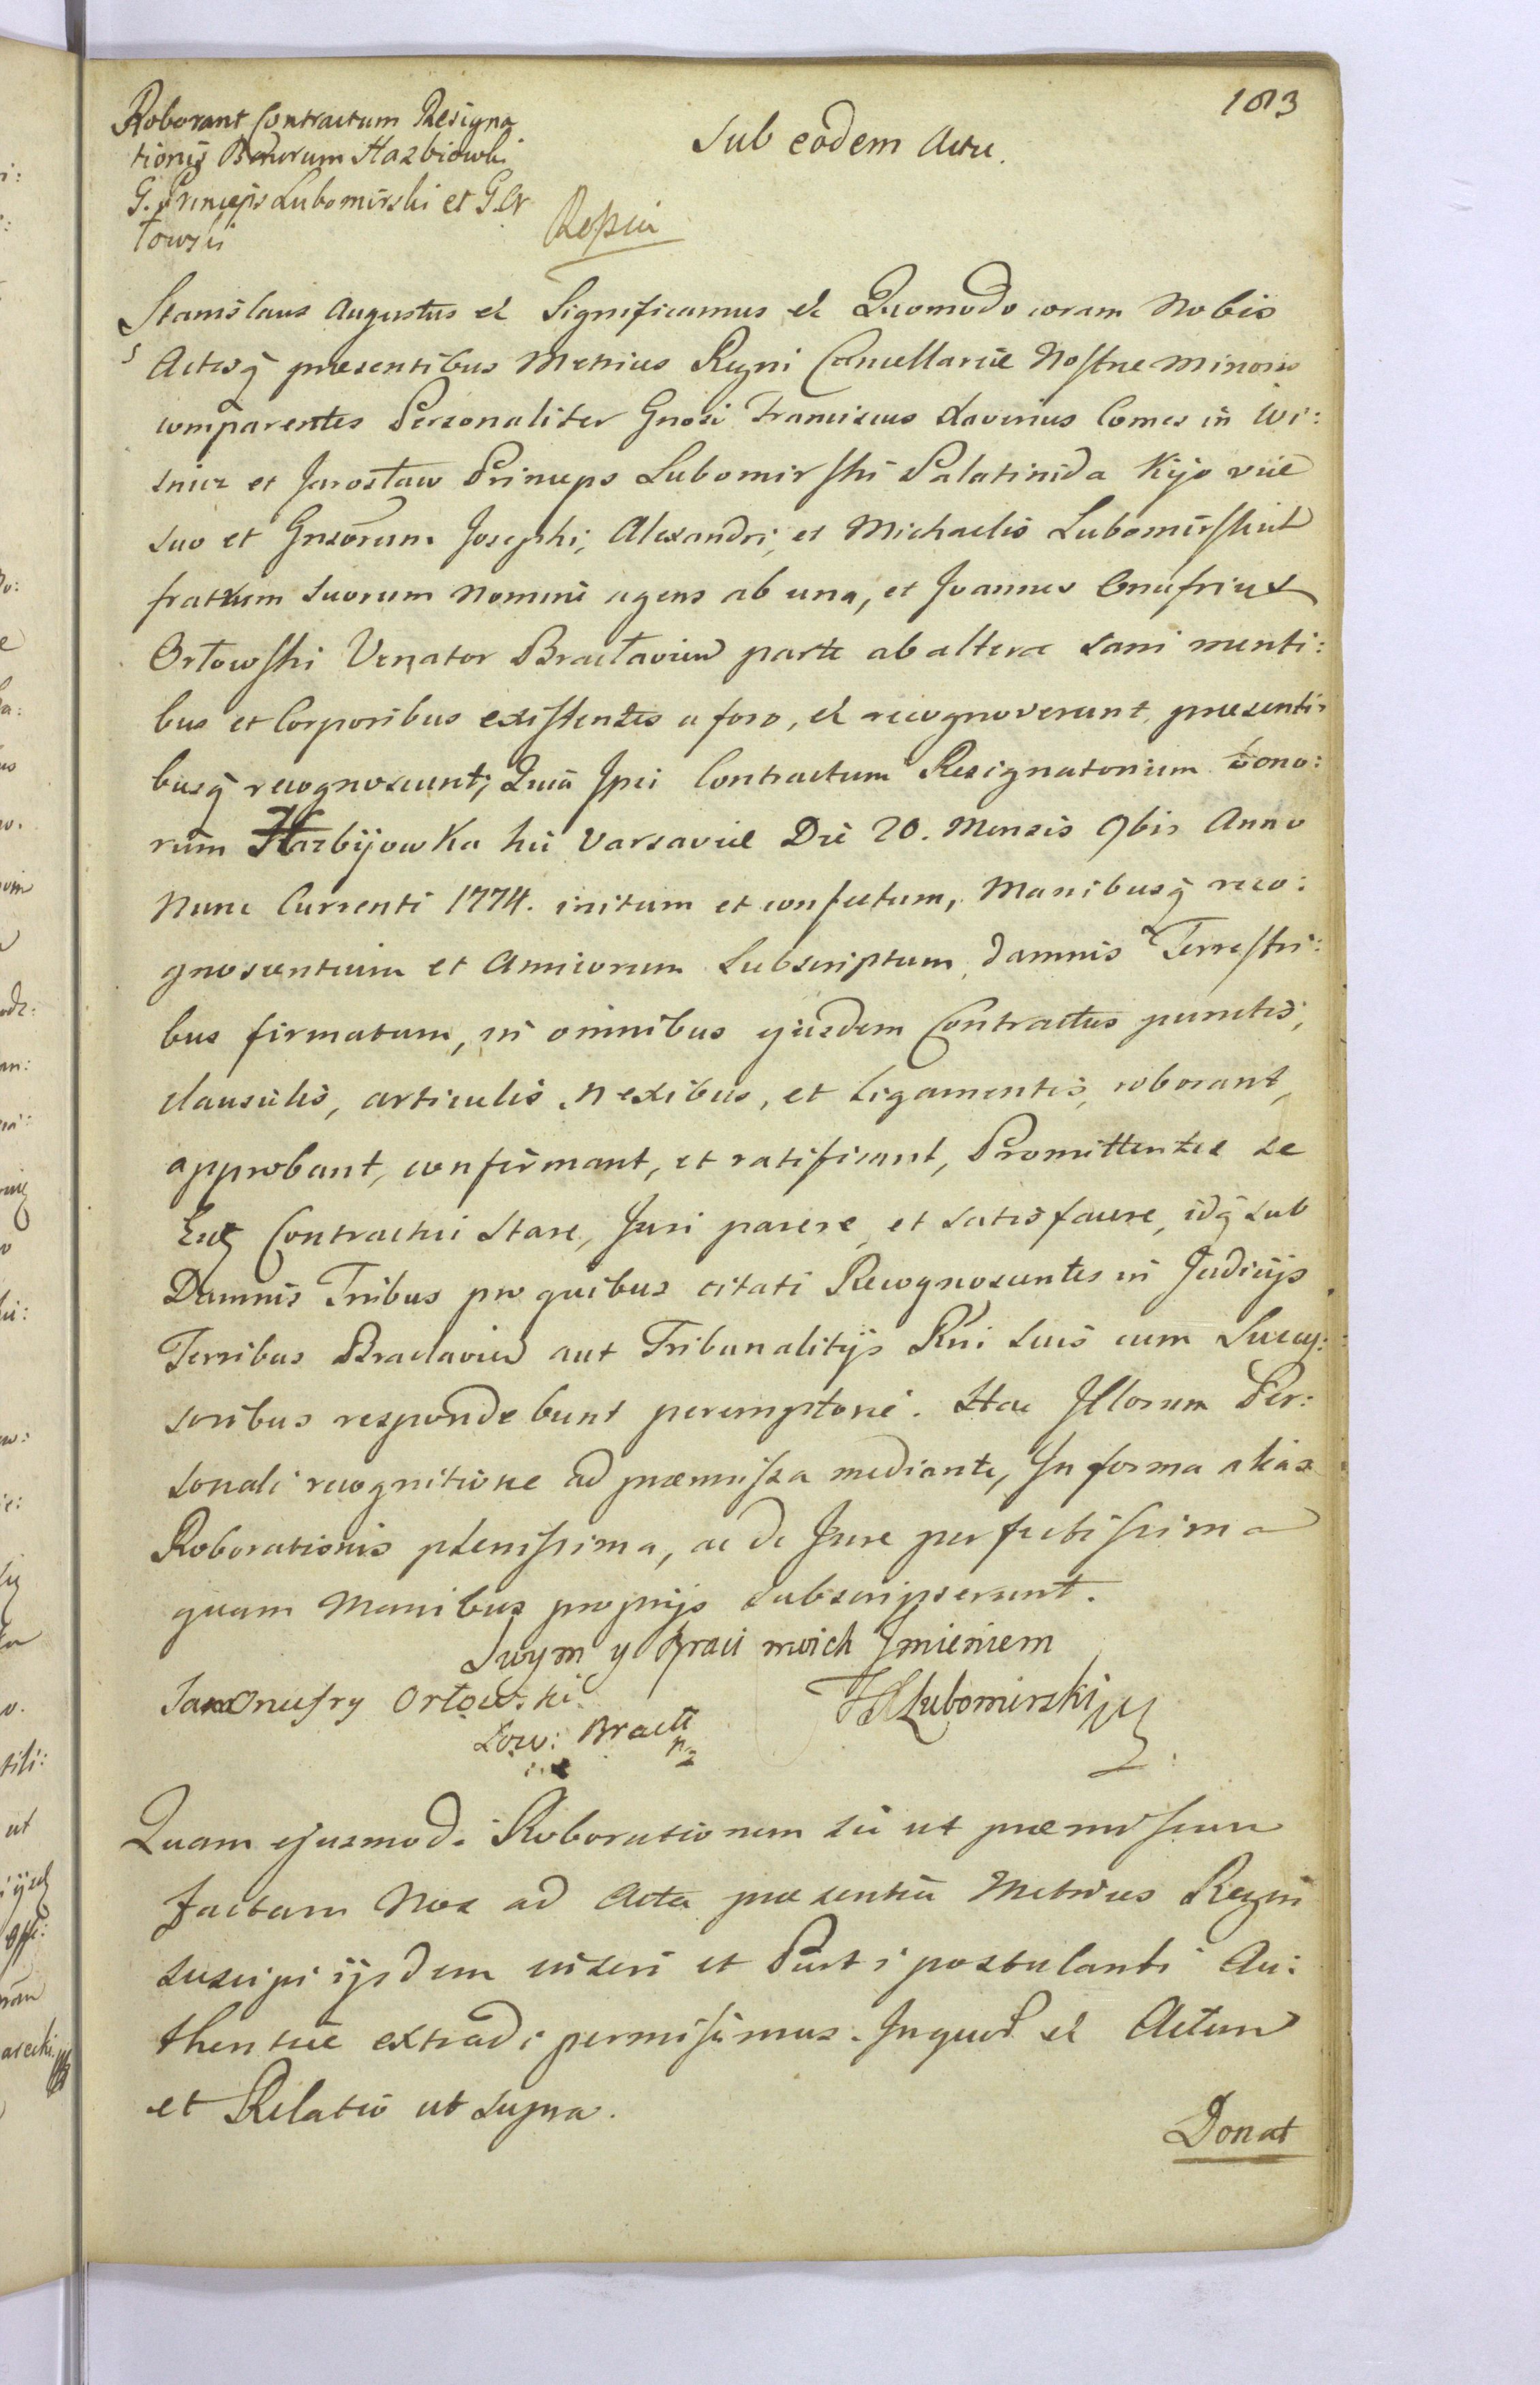 183
Roborant Contractum Resigna
tionis Bonorum Hazbiowki
G. Princeps Lubomirski et G. Or
łowski
Sub eodem Actu.
Stanislaus Augustus et Significamus et Quomodo coram Nobis
Actisq̃ præsentibus Metrices Regni Cancellariæ Nostræ Minoris
comparentes Personaliter Gnosi Franciscus Xaverius Comes in Wi:
snicz et Jarosław Princeps Lubomirski Palatinida Kijoviæ
suo et Gnsorum Josephi, Alexandri, et Michaelis Lubomirskich
fratrum suorum nomine agens ab una, et Joannes Onufrius
Orłowski Venator Bracłavien parte ab altera sani menti:
bus et Corporibus existentes a foro, et recognoverunt, præsenti:
busq̃ recognoscunt; Quia Ipsi Contractum Resignatorium bono:
rum Hazbijowka hic Varsaviæ Die 20. Mensis 9bis Anno
Nunc Currenti 1774. initum et confectum, Manibusq̃ reco:
gnoscentium et Amicorum Subscriptum, damnis Terrestri:
bus firmatum, in omnibus ejusdem Contractus punctis,
clausulis, articulis nexibus, et Ligamentis, roborant,
approbant, confirmant, et ratificant, Promittentes se
Contractui stare, Juri parere, et satisfacere, idq̃ sub
Damnis Tribus pro quibus citati Recognoscentes in Judicijs
Terribus Braclavien aut Tribunalitijs Rni suis cum Succes:
soribus respondebunt peremptorie. Hac Illorum Per:
sonali recognitione ad præmissa mediante, In forma alias
Roborationis plenissima, ac de Jure perfectissima
quam Manibus proprijs subscripserunt.
Swym y Braci moich Imieniem
Jan Onufry Orłowski
Łow: Bracł
FX Lubomirski
Quam ejusmodi Roborationem sic ut præmissum
factam Nos ad Acta præsentia Metrices Regni
suscipi ijsdem inseri et Parti postulanti Au:
thentice extradi permisimus. In quor et Actum
et Relatio ut supra.
Donat